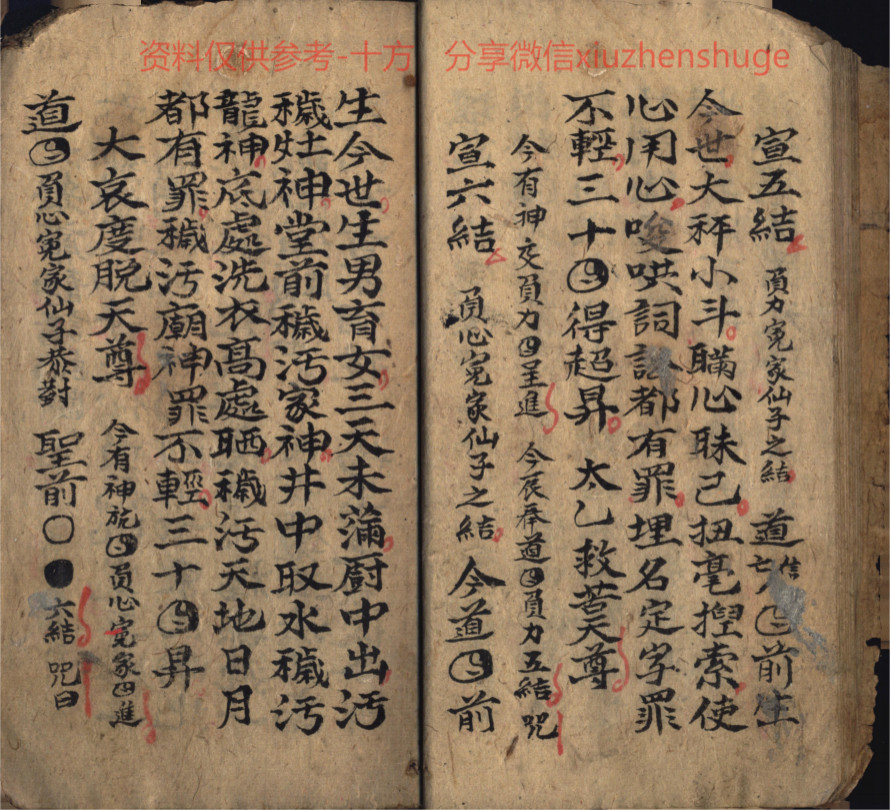 资料仅供参考-十方 分享微信xiuzhenshuge
宣五結 負力冤家仙子之結 道信七 前生
今世大秤小斗瞞心昧己扭毫揑索使
心用心唆哄詞訟都有罪埋名定字罪
不輕三十得超昇 太乙救苦天尊
今有神交負力呈進 今辰奉道負力五結咒
宣六結 負心冤家仙子之結 今道前
生今世生男育女三天未滿厨中出污
穢灶神堂前穢污家神井中取水穢污
龍神底處洗衣高處晒穢污天地日月
都有罪穢污廟神罪不輕三十昇
大哀度脱天尊 今有神旒負心冤家進
道負心冤家仙子恭對 聖前〇● 六結 咒曰